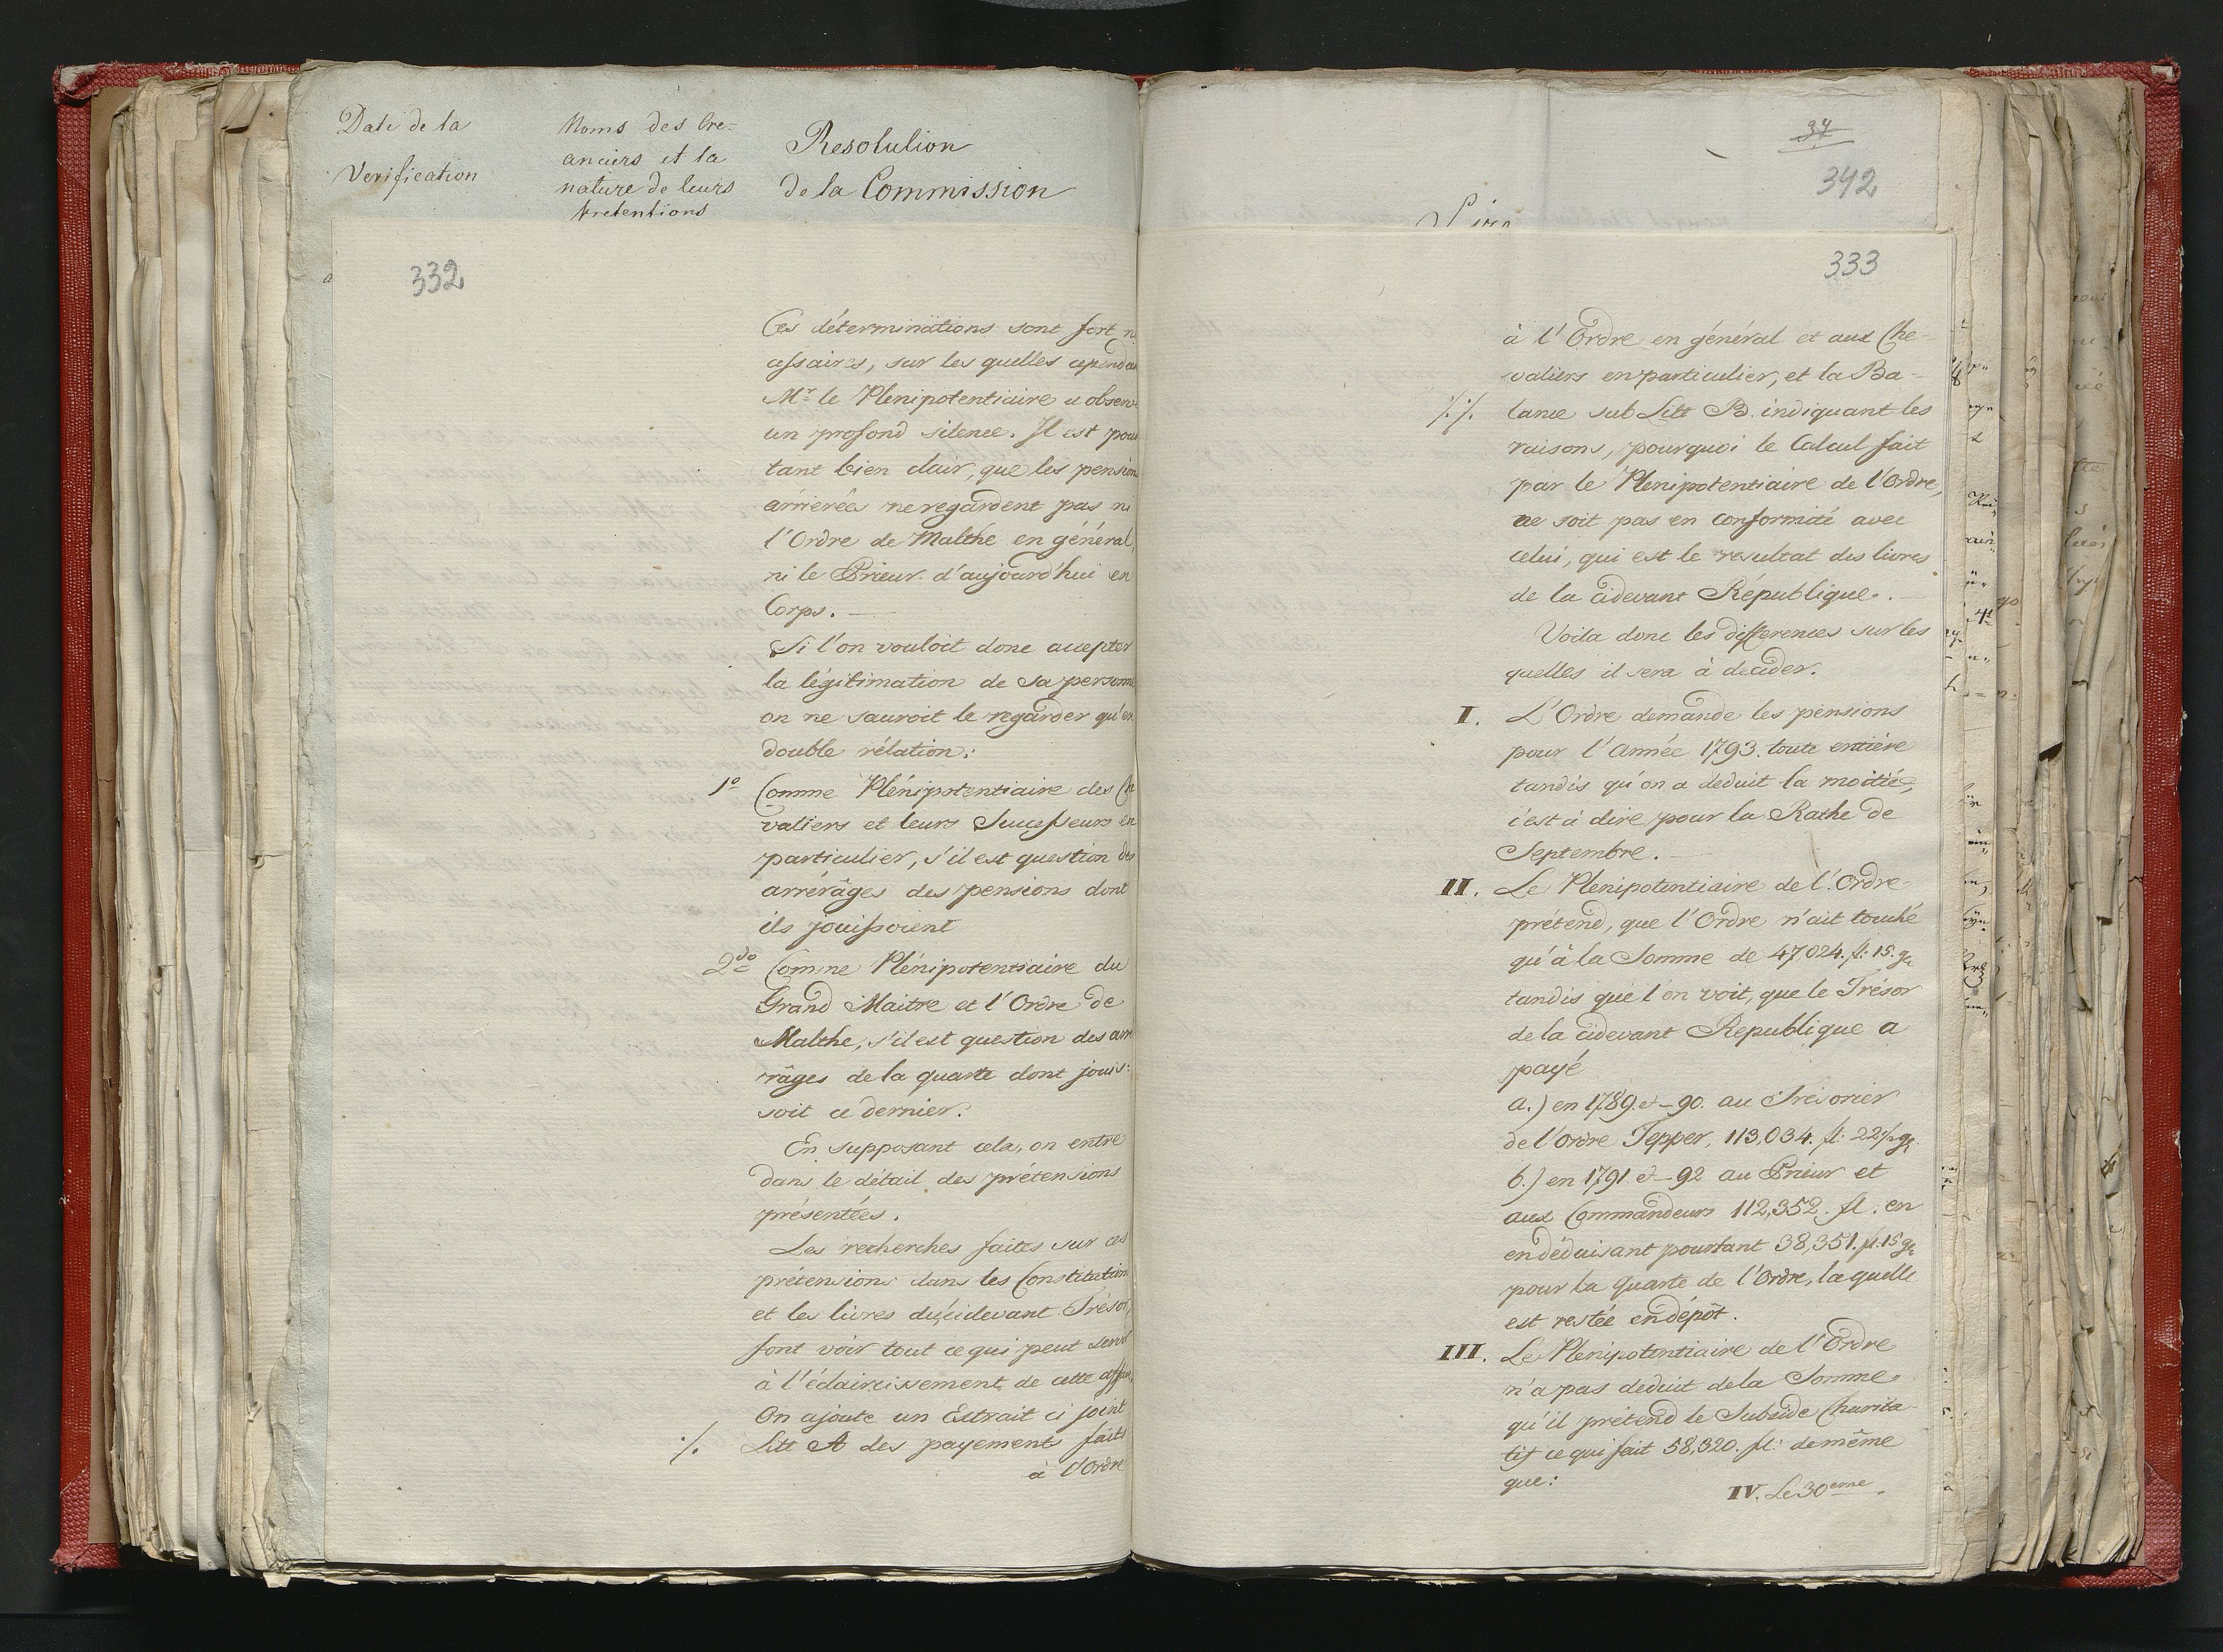 Date de la
Verification
Noms des Cre-
anciers et la
nature de leurs
Pretentions
Resolution
de la Commission
332
Ces déterminations sont fort n
cessaires, sur les quelles cependa
Mr. le Plenipotentiaire a obser
un profond silence. Il est pour
tant bien clair, que les pensions
arrierées ne regardent pas ni
l'Ordre de Malthe en général,
ni le Prieur d'aujourd'hui en
Corps. —
Si l'on vouloit donc accepter
la légitimation de sa personne
on ne sauroit le regarder qu'en
double rélation:
1o Comme Plénipotentiaire des Che
valiers et leurs Successeurs en
particulier, s'il est question des
arrérâges des pensions dont
ils jouissoient
2do Comme Plénipotentiaire du
Grand Maitre et l'Ordre de
Malthe, s'il est question des arre
râges de la quarte dont jouis:
soit ce dernier.
En supposant cela, on entre
dans le détail des prétensions
présentées.
Les recherches faites sur ces
prétensions dans les Constitution
et les livres du cidevant Trésor,
font voir tout ce qui peut servir
à l'éclaircissement de cette affair
On ajoute un Extrait ci joint
./. Litt A des payements faits
à l'Ordre
34
342
333
à l'Ordre en général et aux Che-
valiers en particulier, et la Ba-
./././. lance sub Litt B. indiquant les
raisons, pourquoi le Calcul fait
par le Plenipotentiaire de l'Ordre,
ne soit pas en conformité avec
celui, qui est le resultat des livres
de la cidevant République. —
Voila donc les differences sur les
quelles il sera à decider.
I. L'Ordre demande les pensions
pour l'Année 1793. toute entière
tandis qu'on a deduit la moitié,
c'est à dire pour la Rathe de
Septembre. —
II. Le Plenipotentiaire de l'Ordre
prétend, que l'Ordre n'ait touché
qu'à la Somme de 47,024. fl: 15. g
tandis que l'on voit, que le Trésor
de la cidevant Republique a
payé
a.) en 1789. et — 90. au Trésorier
de l'Ordre Tepper, 113,034. fl: 22 1/2 g
b.) en 1791. et — 92 au Prieur et
aux Commandeurs 112,352. fl. en
en déduisant pourtant 38,351. fl. 15 g
pour la Quarte de l'Ordre, la quelle
est restée en dépôt.
III. Le Plenipotentiaire de l'Ordre
n'a pas deduit de la Somme
qu'il prétend le Subside Charita-
tif ce qui fait 58,320. fl: de même
que:
IV. Le 30eme.